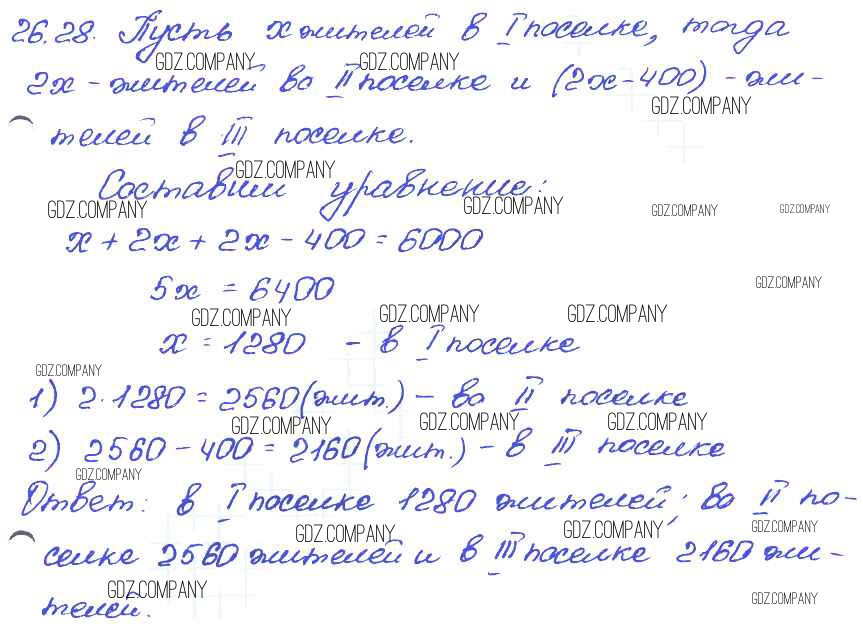 26.28. Пусть x жителей в I поселке, тогда
GDZ.COMPANY GDZ.COMPANY
2x - жителей во II поселке и (2x-400) - жи-
GDZ.COMPANY
телей в III поселке.
GDZ.COMPANY
Составим уравнение:
GDZ.COMPANY GDZ.COMPANY GDZ.COMPANY GDZ.COMPANY
x + 2x + 2x - 400 = 6000
GDZ.COMPANY
5x = 6400
GDZ.COMPANY GDZ.COMPANY GDZ.COMPANY
x = 1280 - в I поселке
GDZ.COMPANY
1) 2·1280 = 2560 (жит.) - во II поселке
GDZ.COMPANY GDZ.COMPANY GDZ.COMPANY
2) 2560 - 400 = 2160 (жит.) - в III поселке
GDZ.COMPANY
Ответ: в I поселке 1280 жителей; во II по-
GDZ.COMPANY GDZ.COMPANY GDZ.COMPANY
селке 2560 жителей и в III поселке 2160 жи-
GDZ.COMPANY GDZ.COMPANY
телей.